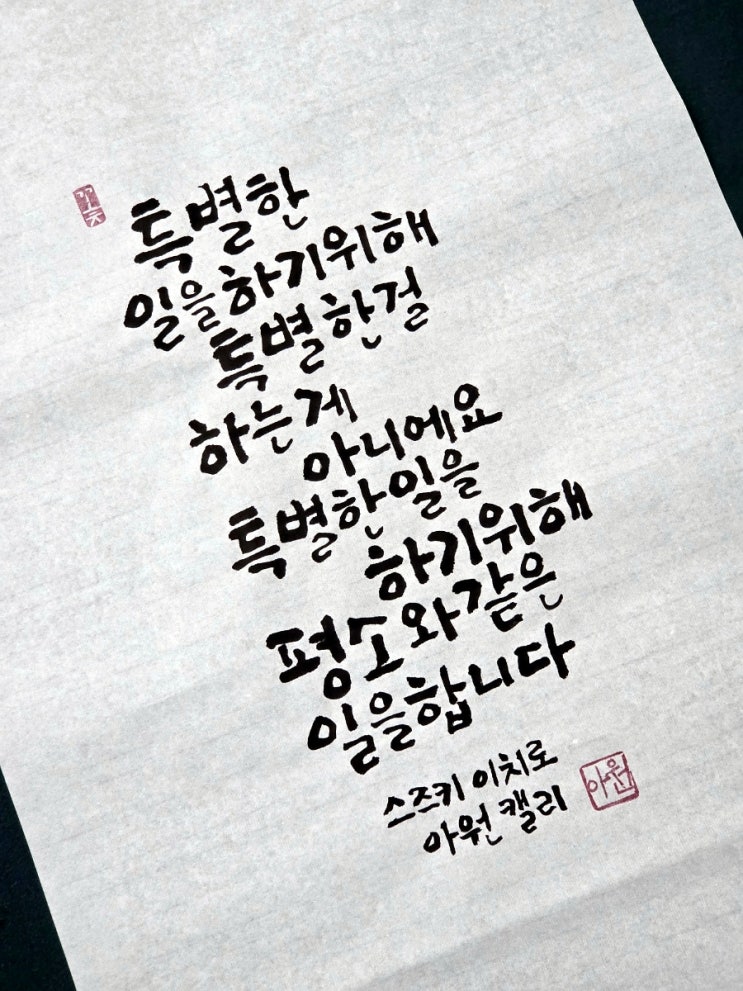 특별한
일을하기위해
특별한걸
하는게
아니에요
특별한일을
하기위해
평소와같은
일을합니다
스즈키 이치로
아원 캘리
아원